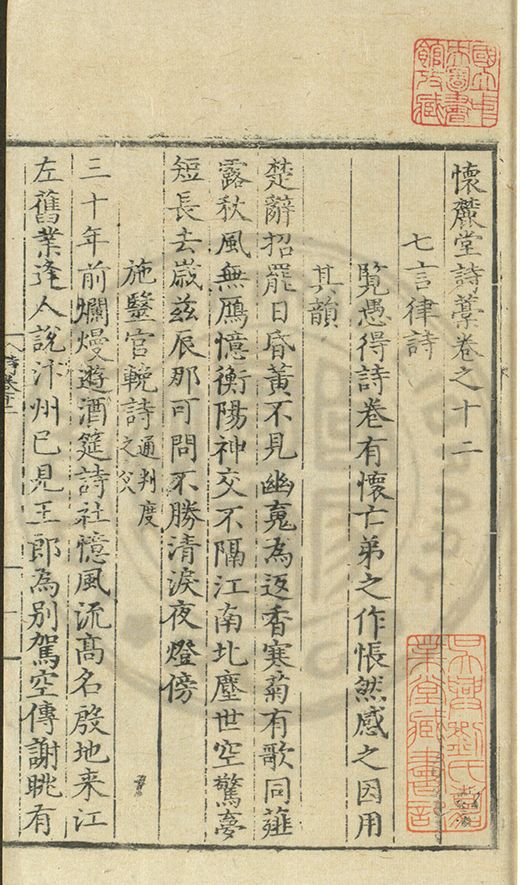 國立中
央圖書
館攷藏
懷麓堂詩藁卷之十二
七言律詩
覧愚得詩卷有懷亡弟之作悵然感之因用
其韻
楚辭招罷日昏黃不見幽䰟為返香寒菊有歌同薤
露秋風無鴈憶衡陽神交不隔江南北塵世空驚夢
短長去歲兹辰那可問不勝清淚夜燈傍
施毉官輓詩通判度
之父
三十年前爛熳遊酒筵詩社憶風流髙名殷地來江
左舊業逢人說汴州已見王郎為別駕空傳謝眺有
吳興劉氏嘉
業堂藏書記